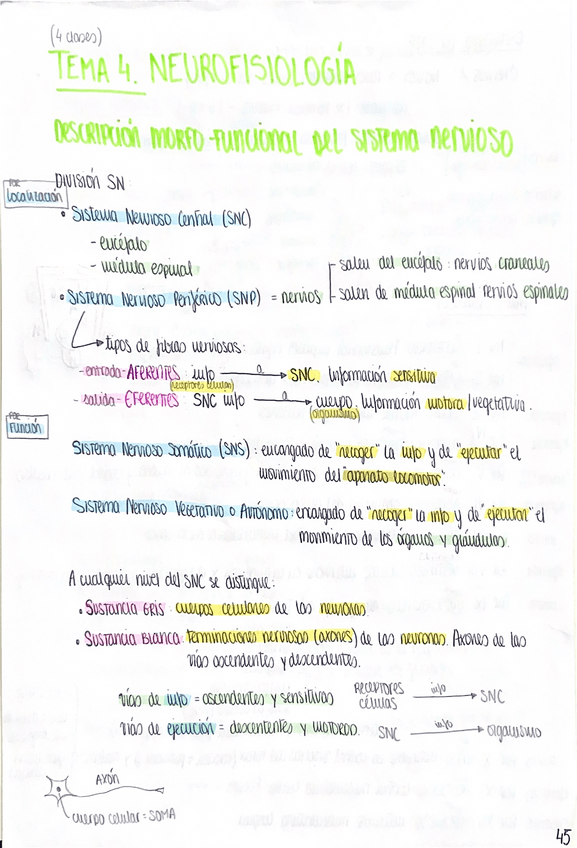 (4 clases)
TEMA 4. NEUROFISIOLOGÍA
DESCRIPCIÓN MORFO-FUNCIONAL DEL SISTEMA NERVIOSO
POR
localización
DIVISIÓN SN:
• Sistema Nervioso Central (SNC)
- encéfalo
- médula espinal
• Sistema Nervioso Periférico (SNP) = nervios
- salen del encéfalo: nervios craneales
- salen de médula espinal nervios espinales
tipos de fibras nerviosas:
- entrada - AFERENTES: info → a SNC. Información sensitiva
(receptores células)
- salida - EFERENTES SNC info → a cuerpo. Información motora/vegetativa.
(organismo)
POR
Función
Sistema Nervioso Somático (SNS): encargado de "recoger" la info y de "ejecutar" el
movimiento del "aparato locomotor".
Sistema Nervioso Vegetativo o Autónomo: encargado de "recoger" la info y de "ejecutar" el
movimiento de los órganos y glándulas.
A cualquier nivel del SNC se distingue:
• Sustancia Gris: cuerpos celulares de las neuronas.
• Sustancia Blanca: terminaciones nerviosas (axones) de las neuronas. Axones de las
vías ascendentes y descendentes.
vías de info = ascendentes y sensitivas RECEPTORES CÉLULAS info → SNC
vías de ejecución = descententes y motoras. SNC info → organismo
AXÓN
cuerpo celular = SOMA
45